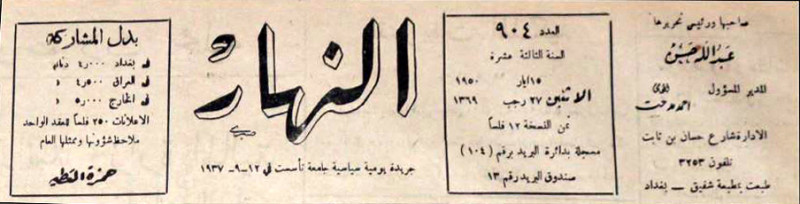 صاحبها ورئيس تحريرها
عبدالله حسن
المدير المسؤول
احمد مدحت
الادارة شارع حسان بن ثابت
تلفون ٣٢٥٣
طبعت بمطبعة شفيق – بغداد
العدد ٩٠٤
السنة الثالثة عشرة
١٥ ايار ١٩٥٠
الاثنين ٢٧ رجب ١٣٦٩
ثمن النسخة ١٢ فلساً
مسجلة بدائرة البريد برقم (١٠٤)
صندوق البريد رقم ١٣
النهار
جريدة يومية سياسية جامعة تأسست في ١٢-٩-١٩٣٧
بدل المشاركة
في بغداد ٤٫٠٠٠ دينار
في العراق ٤٫٥٠٠ »
في الخارج ٥٫٠٠٠ »
الاعلانات ٢٥٠ فلساً للعقد الواحد
ملاحظ شؤونها وممثلها العام
حمزة